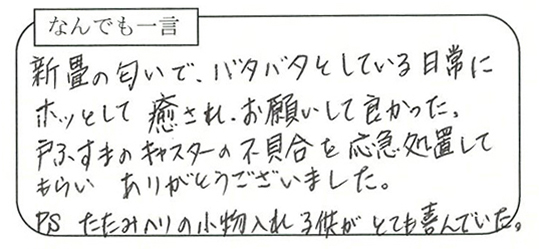 なんでも一言
新畳の匂いで、バタバタとしている日常に
ホッとして癒され、お願いして良かった。
戸ふすまのキャスターの不具合を応急処置して
もらい ありがとうございました。
PS たたみヘリの小物入れ子供がとても喜んでいた。